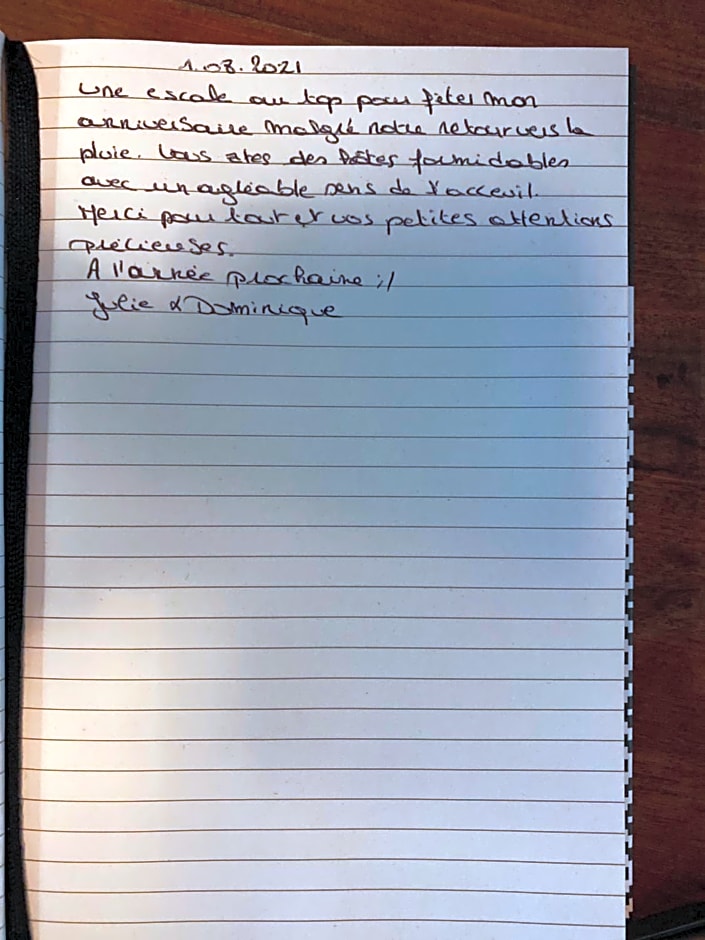 1.08.2021
Une escale au top pour fêter mon
anniversaire malgré notre retour vers la
pluie. Vous êtes des hôtes formidables
avec un agréable sens de l'acceuil.
Merci pour tout et vos petites attentions
précieuses.
A l'année prochaine ;/
Julie & Dominique